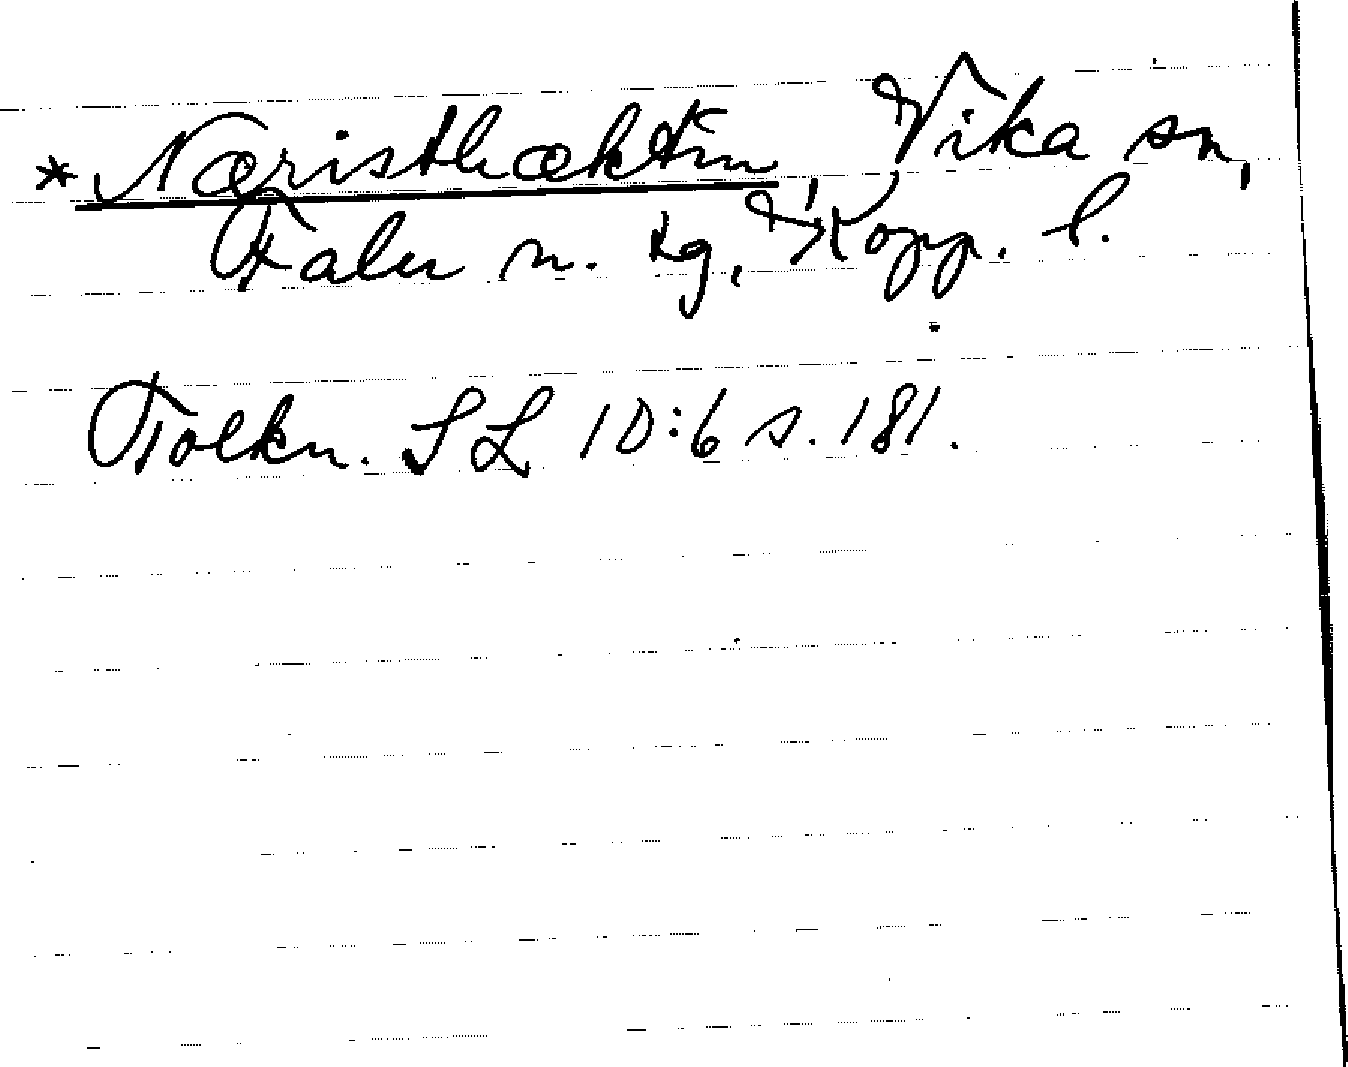 * Næristhækthin, Vika sn,
Falu n. tg, Kopp. l.
Tolkn. SL 10:6 s. 181.